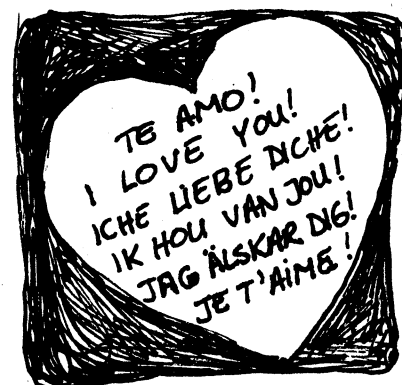 TE AMO!
I LOVE YOU!
ICHE LIEBE DICHE!
IK HOU VAN JOU!
JAG ÄLSKAR DIG!
JE T'AIME!